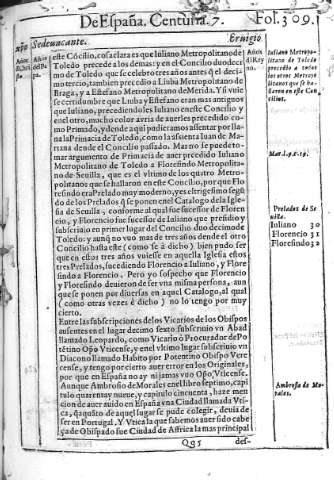 De España. Centuria. 7. Fol. 309.
Sedeuacante. Eruigio
este Cōcilio, cosa clara es que Iuliano Metropolitano de
Toledo precede a los demas: y en el Concilio duodeci
mo de Toledo que se celebro tres años antes q̃ el deci
mo tercio, tambien precedio a Liuba Metropolitano de
Braga, y a Estefano Metropolitano de Merida. Y si vuie
se certidumbre que Liuba y Estefano eran mas antiguos
que Iuliano, precediendoles Iuliano en este Concilio y
en el otro, mucho color auria de auerles precedido co-
mo Primado, y dende aqui pudieramos assentar por lla-
na la Primacia de Toledo, como la assienta Iuan de Ma-
riana desde el Concilio passado. Mas no se puede to-
mar argumento de Primacia de auer precedido Iuliano
Metropolitano de Toledo a Floresindo Metropolita-
no de Seuilla, que es el vltimo de los quatro Metro-
politanos que se hallaron en este Concilio, por que Flo
resindo era Prelado muy moderno, y es el trigesimo segũ
do de los Prelados q̃ se ponen en el Catalogo de la Igle
sia de Seuilla, conforme al qual fue successor de Floren
cio, y Florencio fue successor de Iuliano que presidio y
subscriuio en primer lugar del Concilio duodecimo de
Toledo: y aunq̃ no vuo mas de tres años desde el otro
Concilio hasta este (como se à dicho) bien pudo ser
que en estos tres años vuiesse en aquella Iglesia estos
tres Prelados, sucediendo Florencio a Iuliano, y Flore
sindo a Florencio. Pero yo sospecho que Florencio
y Floresindo deuieron de ser vna misma persona, aun
que se ponen por diuersas en aquel Catalogo, al qual
(como otras vezes è dicho) no lo tengo por muy
cierto.
Entre las subscripciones de los Vicarios de los Obispos
ausentes en el lugar decimo sexto subscriuio vn Abad
llamado Leopardo, como Vicario o Procurador de Po
tētino Oḃpo Vticense, y en el vltimo lugar subscriuio vn
Diacono llamado Habito por Potentino Obispo Vtre
cense, y tengo por cierto auer error en los Originales,
por que en España no ay ni jamas vuo Oḃpo Vticense.
Aunque Ambrosio de Morales en el libro septimo, capi
tulo quarenta y nueue, y capitulo cincuenta, haze men
cion de auer auido en España vna Ciudad llamada Vti-
ca, q̃ a quãto de aquel lugar se pude colegir, deuia de
ser en Portugal. Y Vtica la que sabemos auer sido cabe
ça de Obispado fue Ciudad de Affrica la mas principal
Qq5 des-
Iuliano Metropo-
litano de Toledo
precedio a todos
los otros Metropo
litanos que se ha-
llaron en este Con
cilios.
Prelados de Se
uilla.
Iuliano 30
Florencio 31
Floresindo 32
Ambrosio de Mo-
rales.